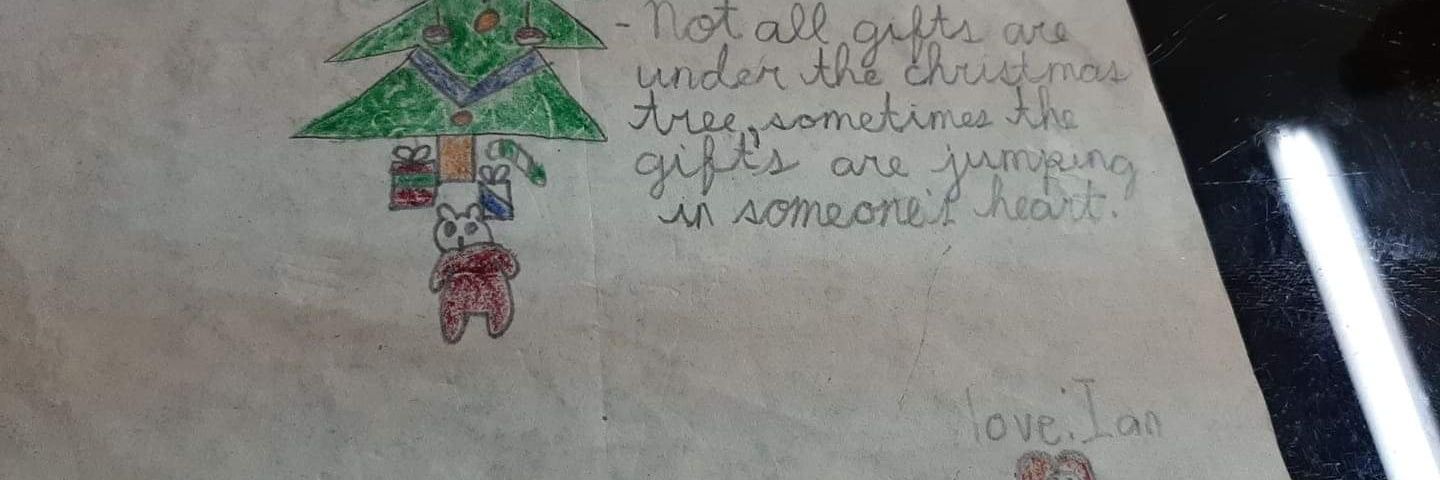 - Not all gifts are
under the christmas
tree, sometimes the
gift's are jumping
in someone's heart.
love: Ian